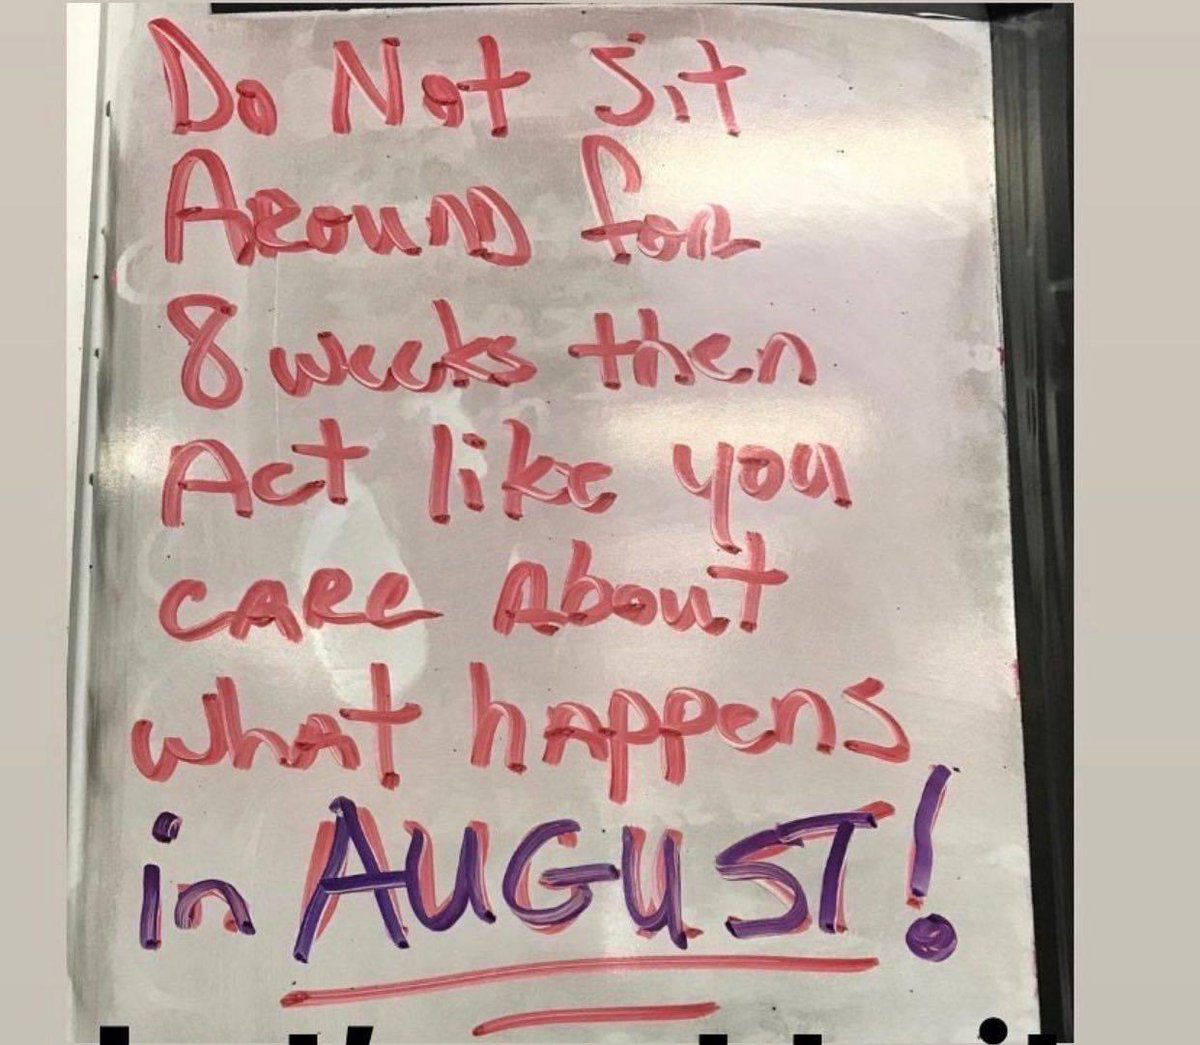 Do Not Sit
Around for
8 weeks then
Act like you
CARE About
what happens
in AUGUST!